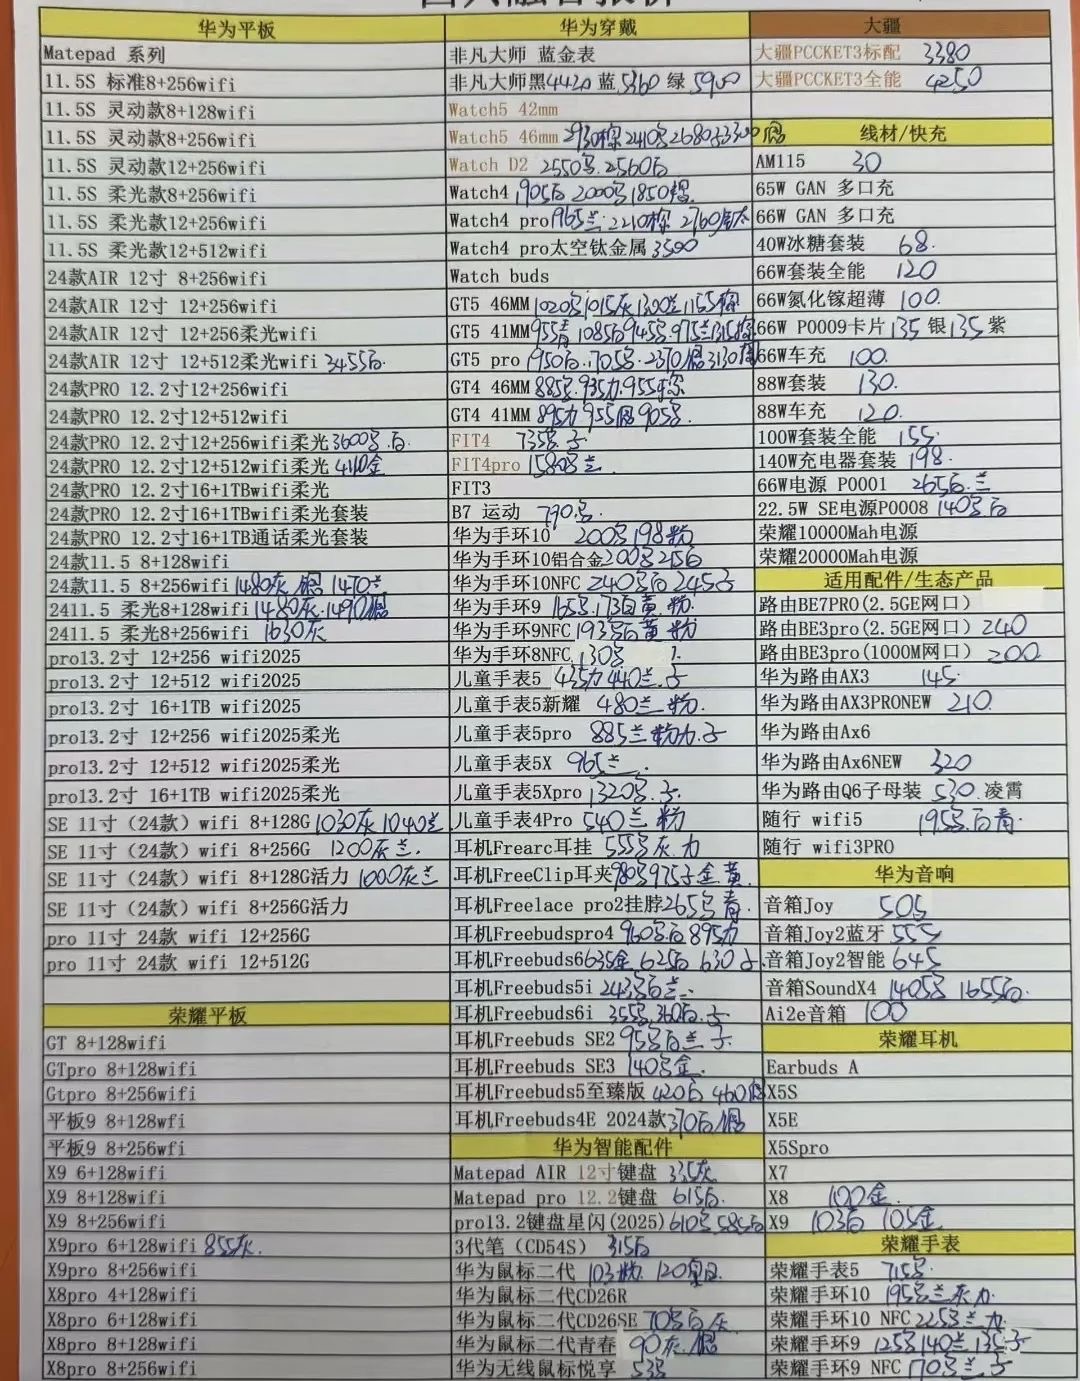 华为平板
Matepad 系列
11.5S 标准8+256wifi
11.5S 灵动款8+128wifi
11.5S 灵动款8+256wifi
11.5S 灵动款12+256wifi
11.5S 柔光款8+256wifi
11.5S 柔光款12+256wifi
11.5S 柔光款12+512wifi
24款AIR 12寸 8+256wifi
24款AIR 12寸 12+256wifi
24款AIR 12寸 12+256柔光wifi
24款AIR 12寸 12+512柔光wifi 3455白.
24款PRO 12.2寸12+256wifi
24款PRO 12.2寸12+512wifi
24款PRO 12.2寸12+256wifi柔光 3600号.白
24款PRO 12.2寸12+512wifi柔光 4110金
24款PRO 12.2寸16+1TBwifi柔光
24款PRO 12.2寸16+1TBwifi柔光套装
24款PRO 12.2寸16+1TB通话柔光套装
24款11.5 8+128wifi
24款11.5 8+256wifi 1480灰 1470兰
2411.5 柔光8+128wifi 1480灰.1490
2411.5 柔光8+256wifi 1630灰
pro13.2寸 12+256 wifi2025
pro13.2寸 12+512 wifi2025
pro13.2寸 16+1TB wifi2025
pro13.2寸 12+256 wifi2025柔光
pro13.2寸 12+512 wifi2025柔光
pro13.2寸 16+1TB wifi2025柔光
SE 11寸（24款）wifi 8+128G 1030灰 1040兰
SE 11寸（24款）wifi 8+256G 1200灰兰.
SE 11寸（24款）wifi 8+128G活力 1000灰兰
SE 11寸（24款）wifi 8+256G活力
pro 11寸 24款 wifi 12+256G
pro 11寸 24款 wifi 12+512G
荣耀平板
GT 8+128wifi
GTpro 8+128wifi
Gtpro 8+256wifi
平板9 8+128wfi
平板9 8+256wfi
X9 6+128wifi
X9 8+128wifi
X9 8+256wifi
X9pro 6+128wifi 855灰.
X9pro 8+256wifi
X8pro 4+128wifi
X8pro 6+128wifi
X8pro 8+128wifi
X8pro 8+256wifi
华为穿戴
非凡大师 蓝金表
非凡大师黑4420 蓝 5360 绿 5900
Watch5 42mm
Watch5 46mm 2930棕 2410号 2680 3300
Watch D2 2550号.2560白
Watch4 1905白 2000号 1850棕
Watch4 pro 1965兰 2210棕 2760
Watch4 pro太空钛金属 3500
Watch buds
GT5 46MM 1020号 1015灰 1300兰 1155棕
GT5 41MM 955青 1085白 945号.975兰 1315棕
GT5 pro 1950白.1705号.2370 3130
GT4 46MM 885号.935力.955棕
GT4 41MM 895力 955 905号
FIT4 735号.子
FIT4pro 1580号兰
FIT3
B7 运动 790号.
华为手环10 200号 198粉
华为手环10铝合金 200号 215白
华为手环10NFC 240号白 245子
华为手环9 165号.173白黄.粉
华为手环9NFC 193号白黄 粉
华为手环8NFC 130号
儿童手表5 435力 440兰.子
儿童手表5新耀 480兰.粉.
儿童手表5pro 885兰粉力.子
儿童手表5X 965兰.
儿童手表5Xpro 1320号.子.
儿童手表4Pro 540兰 粉
耳机Frearc耳挂 555号灰.力
耳机FreeClip耳夹 980号 975子金.黄.
耳机Freelace pro2挂脖 265号青.
耳机Freebudspro4 960号白 895力
耳机Freebuds6 635金 625白 630子.
耳机Freebuds5i 243号白兰
耳机Freebuds6i 355号.360白.子
耳机Freebuds SE2 95号白兰子.
耳机Freebuds SE3 140号金.
耳机Freebuds5至臻版 420白 460
耳机Freebuds4E 2024款 370白
华为智能配件
Matepad AIR 12寸键盘 335灰
Matepad pro 12.2键盘 615白.
pro13.2键盘星闪(2025) 610号 585白
3代笔（CD54S） 315白
华为鼠标二代 103粉. 120
华为鼠标二代CD26R
华为鼠标二代CD26SE 70号白灰
华为鼠标二代青春 90灰.
华为无线鼠标悦享 53号
大疆
大疆PCCKET3标配 3380
大疆PCCKET3全能 4250
线材/快充
AM115 30
65W GAN 多口充
66W GAN 多口充
40W冰糖套装 68.
66W套装全能 120
66W氮化镓超薄 100.
66W P0009卡片 135 银 135 紫
66W车充 100.
88W套装 130.
88W车充 120.
100W套装全能 155.
140W充电器套装 198.
66W电源 P0001 265白.兰
22.5W SE电源P0008 140号白
荣耀10000Mah电源
荣耀20000Mah电源
适用配件/生态产品
路由BE7PRO(2.5GE网口)
路由BE3pro(2.5GE网口) 240
路由BE3pro(1000M网口) 200
华为路由AX3 145.
华为路由AX3PRONEW 210
华为路由Ax6
华为路由Ax6NEW 320
华为路由Q6子母装 530.凌霄
随行 wifi5 195号.白青.
随行 wifi3PRO
华为音响
音箱Joy 505
音箱Joy2蓝牙 555
音箱Joy2智能 645
音箱SoundX4 1405号 1655白.
Ai2e音箱 100
荣耀耳机
Earbuds A
X5S
X5E
X5Spro
X7
X8 100金.
X9 103白 105金
荣耀手表
荣耀手表5 715号.
荣耀手环10 195号兰灰力.
荣耀手环10 NFC 225号兰力
荣耀手环9 125号140兰 135子
荣耀手环9 NFC 170号兰子